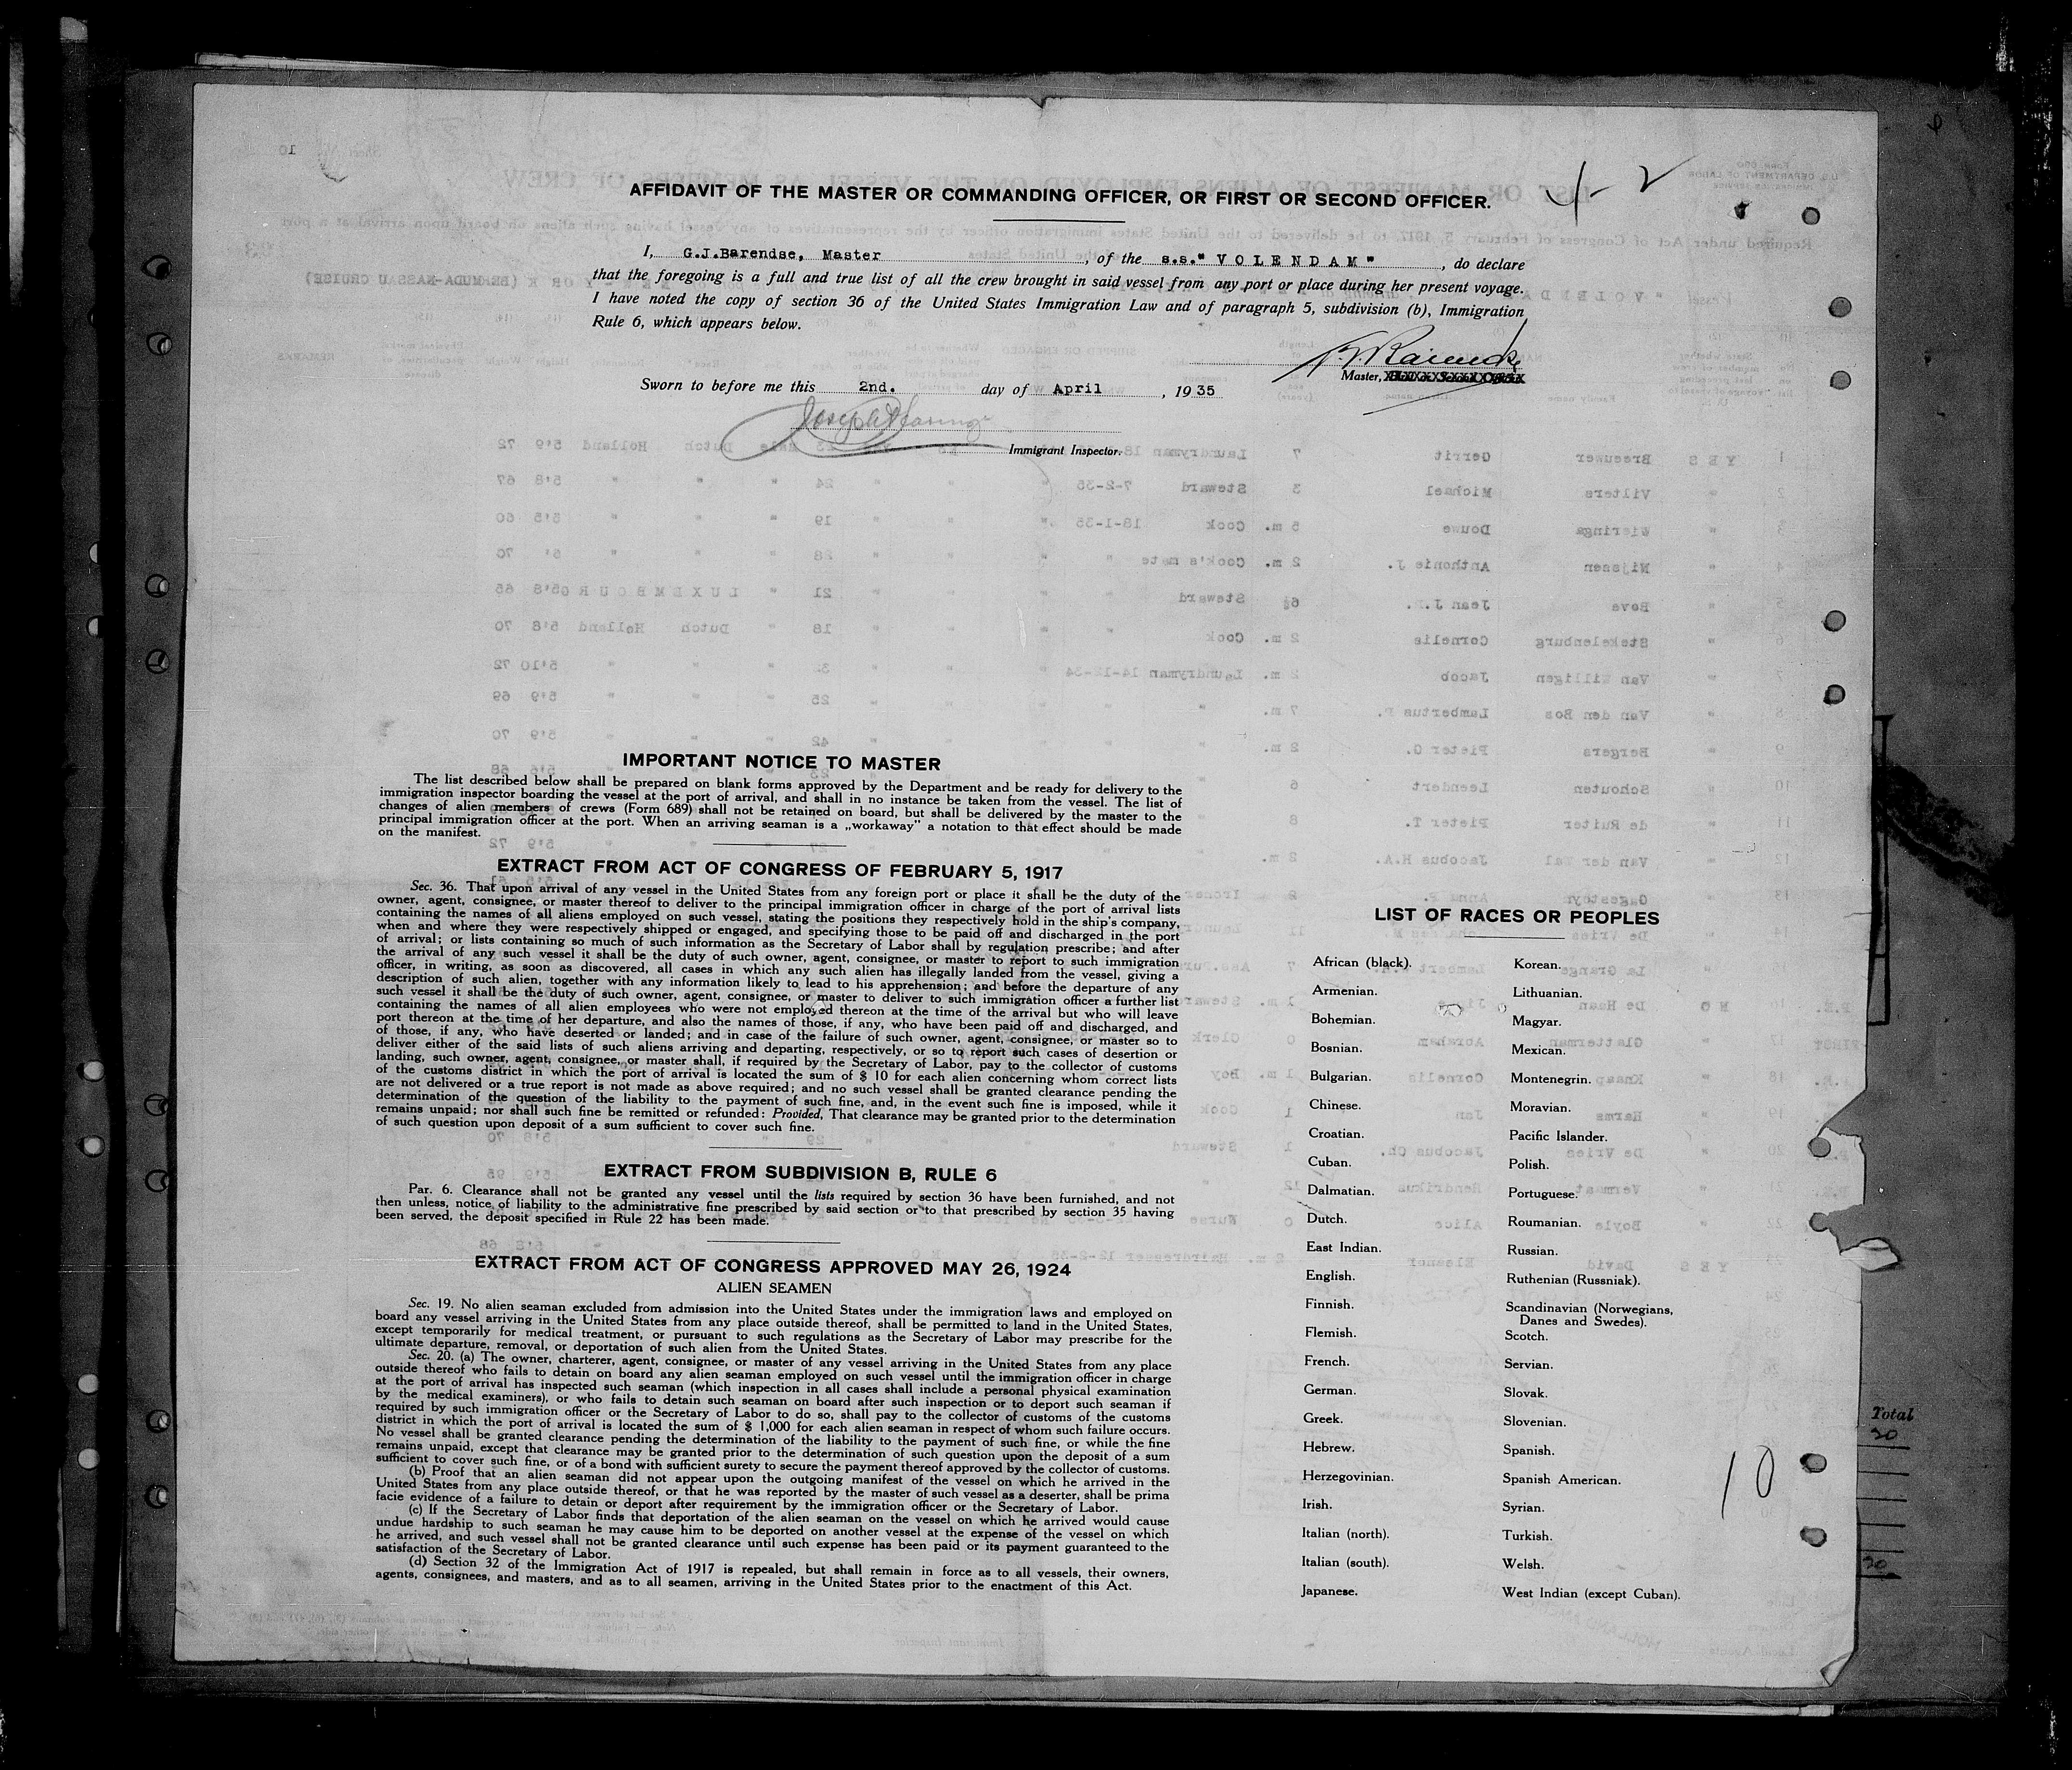 4-2
AFFIDAVIT OF THE MASTER OR COMMANDING OFFICER, OR FIRST OR SECOND OFFICER.
I, G.J.Barendse, Master, of the s.s." V O L E N D A M ", do declare
that the foregoing is a full and true list of all the crew brought in said vessel from any port or place during her present voyage.
I have noted the copy of section 36 of the United States Immigration Law and of paragraph 5, subdivision (b), Immigration
Rule 6, which appears below.
Master,
Sworn to before me this 2nd. day of April, 1935
Immigrant Inspector.
IMPORTANT NOTICE TO MASTER
The list described below shall be prepared on blank forms approved by the Department and be ready for delivery to the
immigration inspector boarding the vessel at the port of arrival, and shall in no instance be taken from the vessel. The list of
changes of alien members of crews (Form 689) shall not be retained on board, but shall be delivered by the master to the
principal immigration officer at the port. When an arriving seaman is a „workaway” a notation to that effect should be made
on the manifest.
EXTRACT FROM ACT OF CONGRESS OF FEBRUARY 5, 1917
Sec. 36. That upon arrival of any vessel in the United States from any foreign port or place it shall be the duty of the
owner, agent, consignee, or master thereof to deliver to the principal immigration officer in charge of the port of arrival lists
containing the names of all aliens employed on such vessel, stating the positions they respectively hold in the ship's company,
when and where they were respectively shipped or engaged, and specifying those to be paid off and discharged in the port
of arrival; or lists containing so much of such information as the Secretary of Labor shall by regulation prescribe; and after
the arrival of any such vessel it shall be the duty of such owner, agent, consignee, or master to report to such immigration
officer, in writing, as soon as discovered, all cases in which any such alien has illegally landed from the vessel, giving a
description of such alien, together with any information likely to lead to his apprehension; and before the departure of any
such vessel it shall be the duty of such owner, agent, consignee, or master to deliver to such immigration officer a further list
containing the names of all alien employees who were not employed thereon at the time of the arrival but who will leave
port thereon at the time of her departure, and also the names of those, if any, who have been paid off and discharged, and
of those, if any, who have deserted or landed; and in case of the failure of such owner, agent, consignee, or master so to
deliver either of the said lists of such aliens arriving and departing, respectively, or so to report such cases of desertion or
landing, such owner, agent, consignee, or master shall, if required by the Secretary of Labor, pay to the collector of customs
of the customs district in which the port of arrival is located the sum of $ 10 for each alien concerning whom correct lists
are not delivered or a true report is not made as above required; and no such vessel shall be granted clearance pending the
determination of the question of the liability to the payment of such fine, and, in the event such fine is imposed, while it
remains unpaid; nor shall such fine be remitted or refunded: Provided, That clearance may be granted prior to the determination
of such question upon deposit of a sum sufficient to cover such fine.
EXTRACT FROM SUBDIVISION B, RULE 6
Par. 6. Clearance shall not be granted any vessel until the lists required by section 36 have been furnished, and not
then unless, notice of liability to the administrative fine prescribed by said section or to that prescribed by section 35 having
been served, the deposit specified in Rule 22 has been made.
EXTRACT FROM ACT OF CONGRESS APPROVED MAY 26, 1924
ALIEN SEAMEN
Sec. 19. No alien seaman excluded from admission into the United States under the immigration laws and employed on
board any vessel arriving in the United States from any place outside thereof, shall be permitted to land in the United States,
except temporarily for medical treatment, or pursuant to such regulations as the Secretary of Labor may prescribe for the
ultimate departure, removal, or deportation of such alien from the United States.
Sec. 20. (a) The owner, charterer, agent, consignee, or master of any vessel arriving in the United States from any place
outside thereof who fails to detain on board any alien seaman employed on such vessel until the immigration officer in charge
at the port of arrival has inspected such seaman (which inspection in all cases shall include a personal physical examination
by the medical examiners), or who fails to detain such seaman on board after such inspection or to deport such seaman if
required by such immigration officer or the Secretary of Labor to do so, shall pay to the collector of customs of the customs
district in which the port of arrival is located the sum of $ 1,000 for each alien seaman in respect of whom such failure occurs.
No vessel shall be granted clearance pending the determination of the liability to the payment of such fine, or while the fine
remains unpaid, except that clearance may be granted prior to the determination of such question upon the deposit of a sum
sufficient to cover such fine, or of a bond with sufficient surety to secure the payment thereof approved by the collector of customs.
(b) Proof that an alien seaman did not appear upon the outgoing manifest of the vessel on which he arrived in the
United States from any place outside thereof, or that he was reported by the master of such vessel as a deserter, shall be prima
facie evidence of a failure to detain or deport after requirement by the immigration officer or the Secretary of Labor.
(c) If the Secretary of Labor finds that deportation of the alien seaman on the vessel on which he arrived would cause
undue hardship to such seaman he may cause him to be deported on another vessel at the expense of the vessel on which
he arrived, and such vessel shall not be granted clearance until such expense has been paid or its payment guaranteed to the
satisfaction of the Secretary of Labor.
(d) Section 32 of the Immigration Act of 1917 is repealed, but shall remain in force as to all vessels, their owners,
agents, consignees, and masters, and as to all seamen, arriving in the United States prior to the enactment of this Act.
LIST OF RACES OR PEOPLES
African (black).
Armenian.
Bohemian.
Bosnian.
Bulgarian.
Chinese.
Croatian.
Cuban.
Dalmatian.
Dutch.
East Indian.
English.
Finnish.
Flemish.
French.
German.
Greek.
Hebrew.
Herzegovinian.
Irish.
Italian (north).
Italian (south).
Japanese.
Korean.
Lithuanian.
Magyar.
Mexican.
Montenegrin.
Moravian.
Pacific Islander.
Polish.
Portuguese.
Roumanian.
Russian.
Ruthenian (Russniak).
Scandinavian (Norwegians,
Danes and Swedes).
Scotch.
Servian.
Slovak.
Slovenian.
Spanish.
Spanish American.
Syrian.
Turkish.
Welsh.
West Indian (except Cuban).
10
Total
20
20